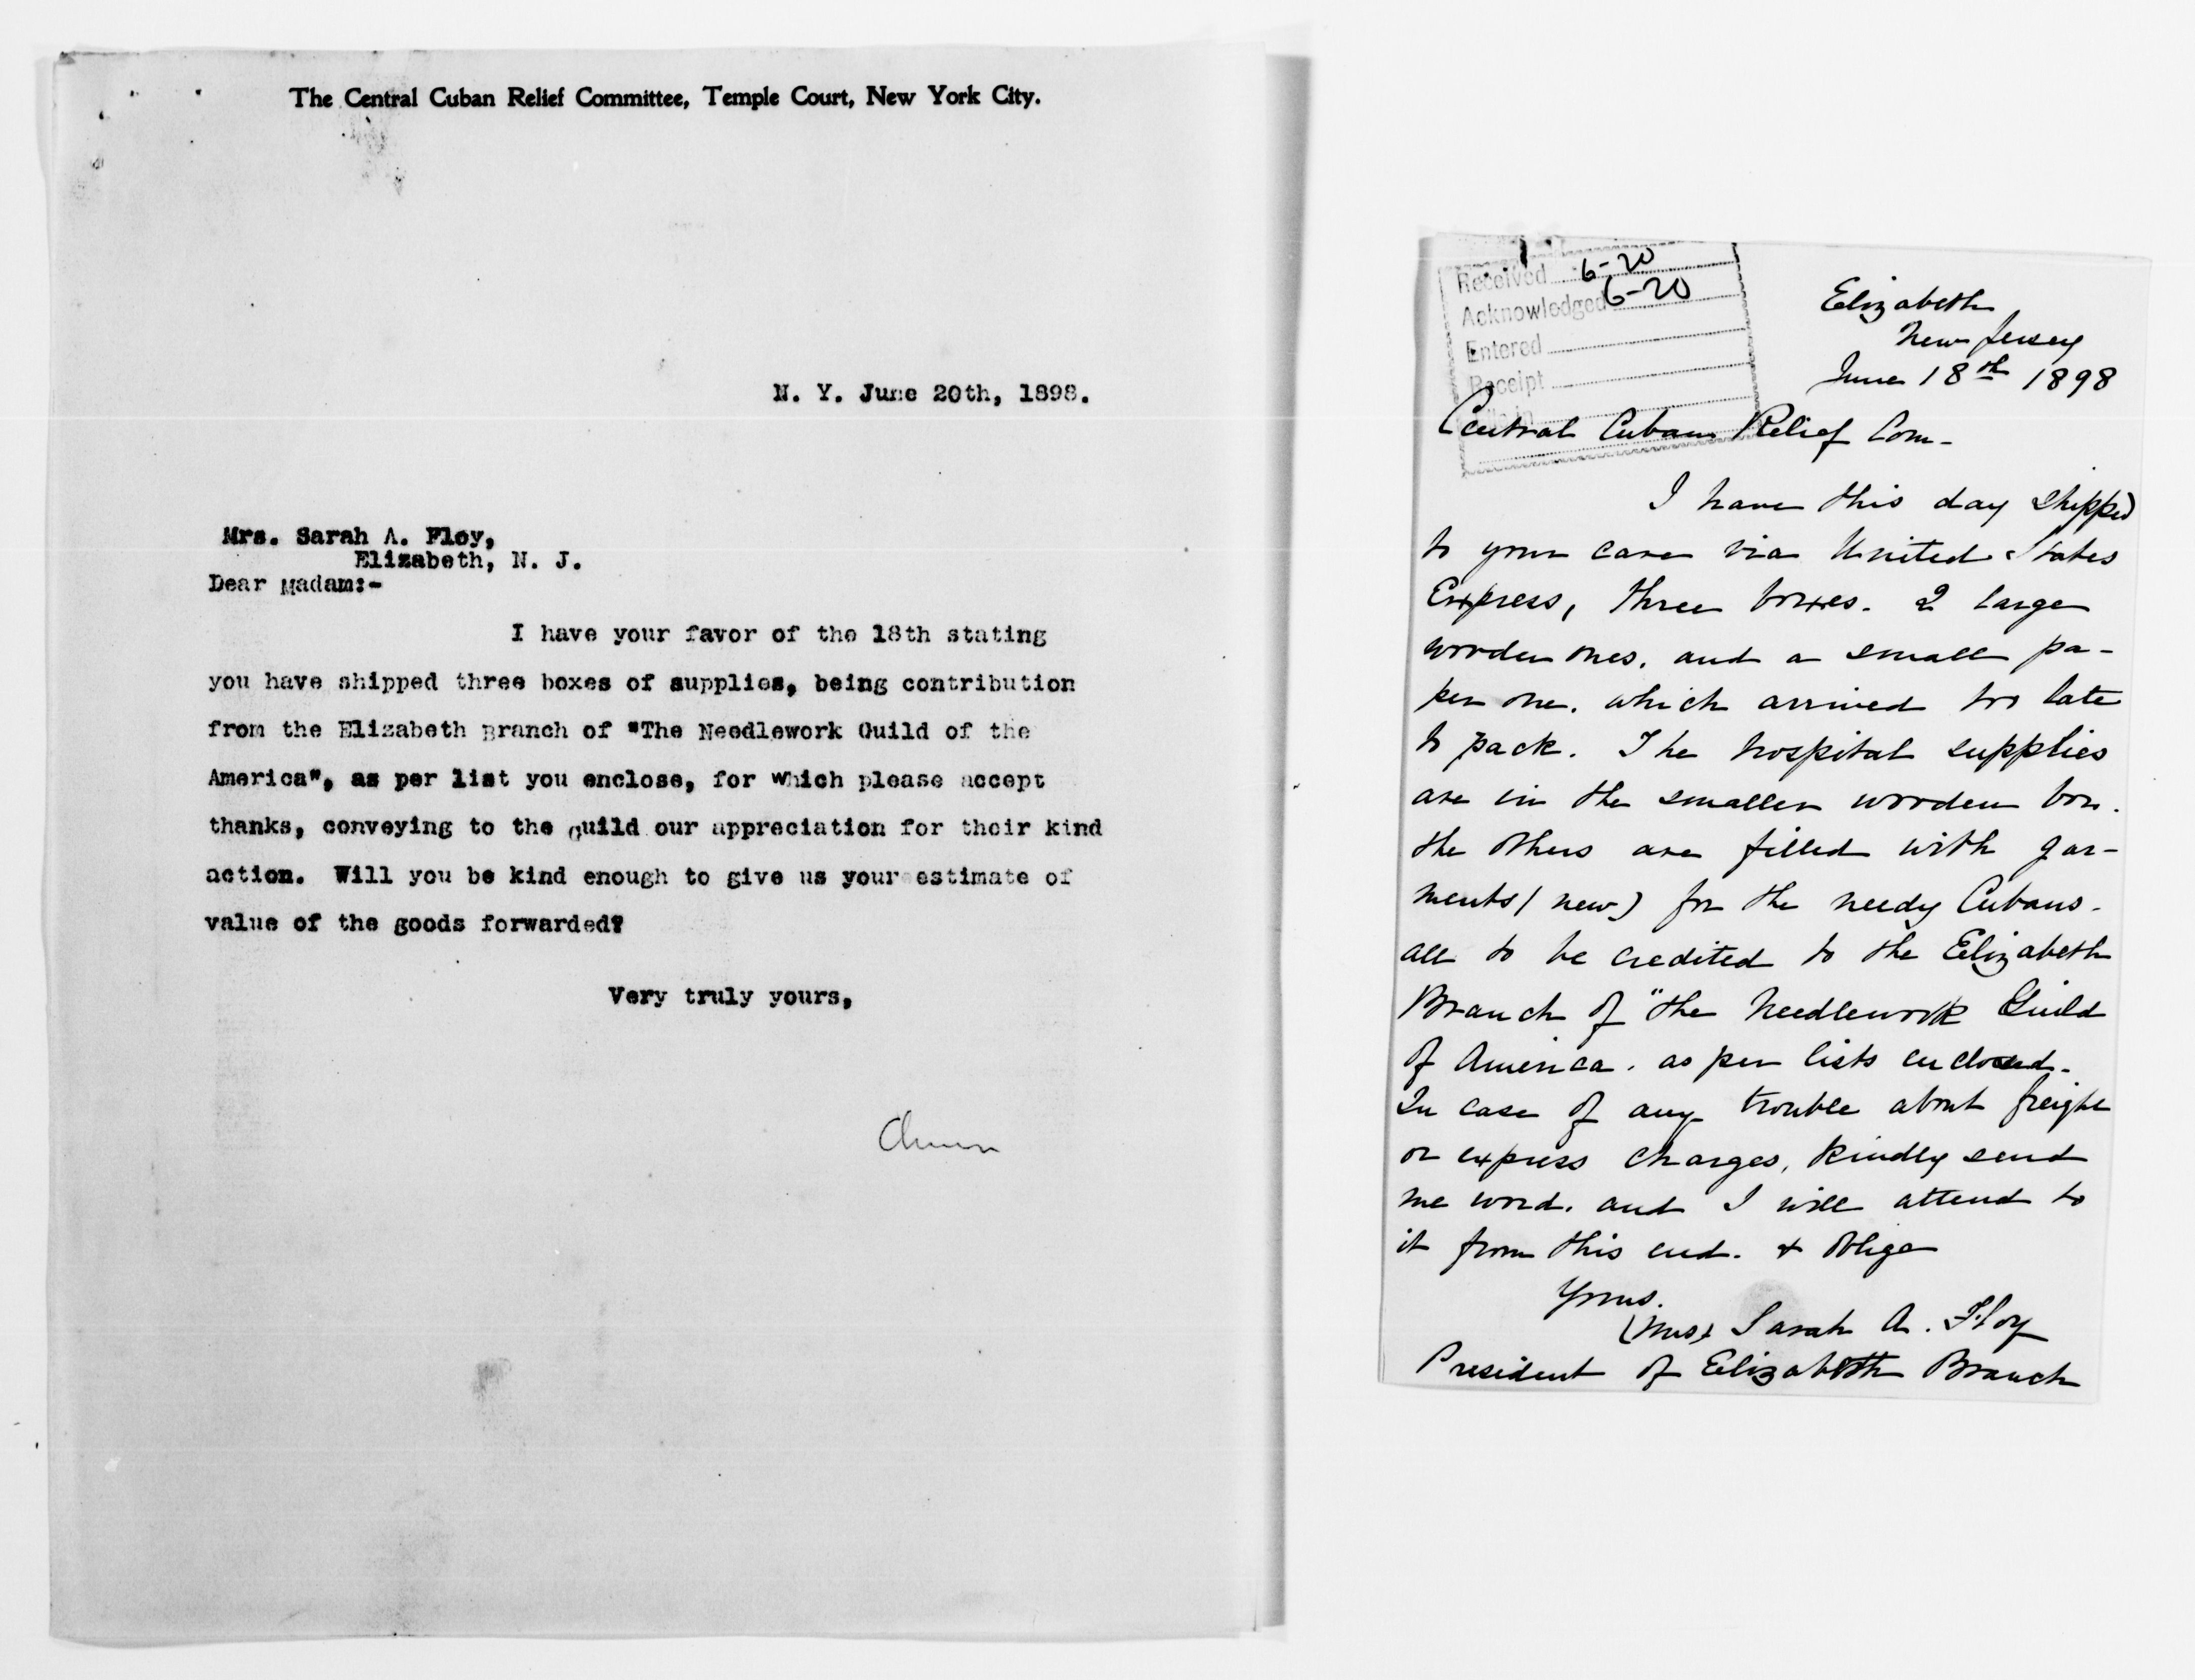 The Central Cuban Relief Committee, Temple Court, New York City.
N. Y. June 20th, 1898.
Mrs. Sarah A. Floy,
Elizabeth, N. J.
Dear Madam:-
I have your favor of the 18th stating
you have shipped three boxes of supplies, being contribution
from the Elizabeth Branch of "The Needlework Guild of the
America", as per list you enclose, for which please accept
thanks, conveying to the Guild our appreciation for their kind
action. Will you be kind enough to give us your estimate of
value of the goods forwarded?
Very truly yours,
Received 6-20
Acknowledged 6-20
Entered
Receipt
File in
Elizabeth
New Jersey
June 18th 1898
Central Cuban Relief Com-
I have this day shipped
to your care via United States
Express, three boxes. 2 large
wooden ones. and a small pa-
per one. which arrived too late
to pack. The hospital supplies
are in the smaller wooden box.
the others are filled with gar-
ments (new) for the needy Cubans.
all to be credited to the Elizabeth
Branch of "the Needlework Guild
of America. as per lists enclosed.
In case of any trouble about freight
or express charges, kindly send
me word. and I will attend to
it from this end. & oblige
Yours.
(Mrs) Sarah A. Floy
President of Elizabeth Branch